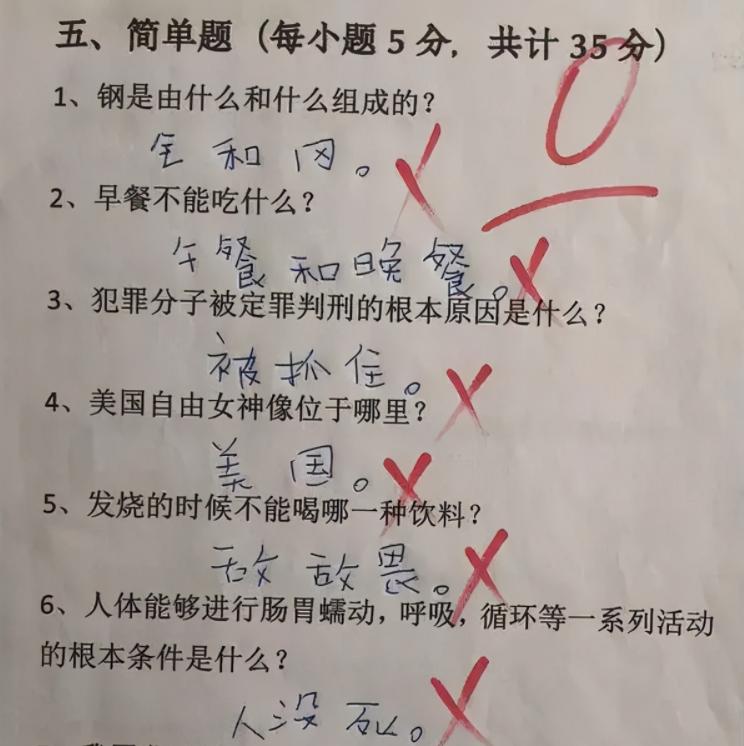 五、简单题（每小题5分，共计35分）
0
1、钢是由什么和什么组成的？
和冈。
2、早餐不能吃什么？
午餐和晚餐。
3、犯罪分子被定罪判刑的根本原因是什么？
被抓住。
4、美国自由女神像位于哪里？
美国。
5、发烧的时候不能喝哪一种饮料？
敌敌畏。
6、人体能够进行肠胃蠕动，呼吸，循环等一系列活动
的根本条件是什么？
人没死。